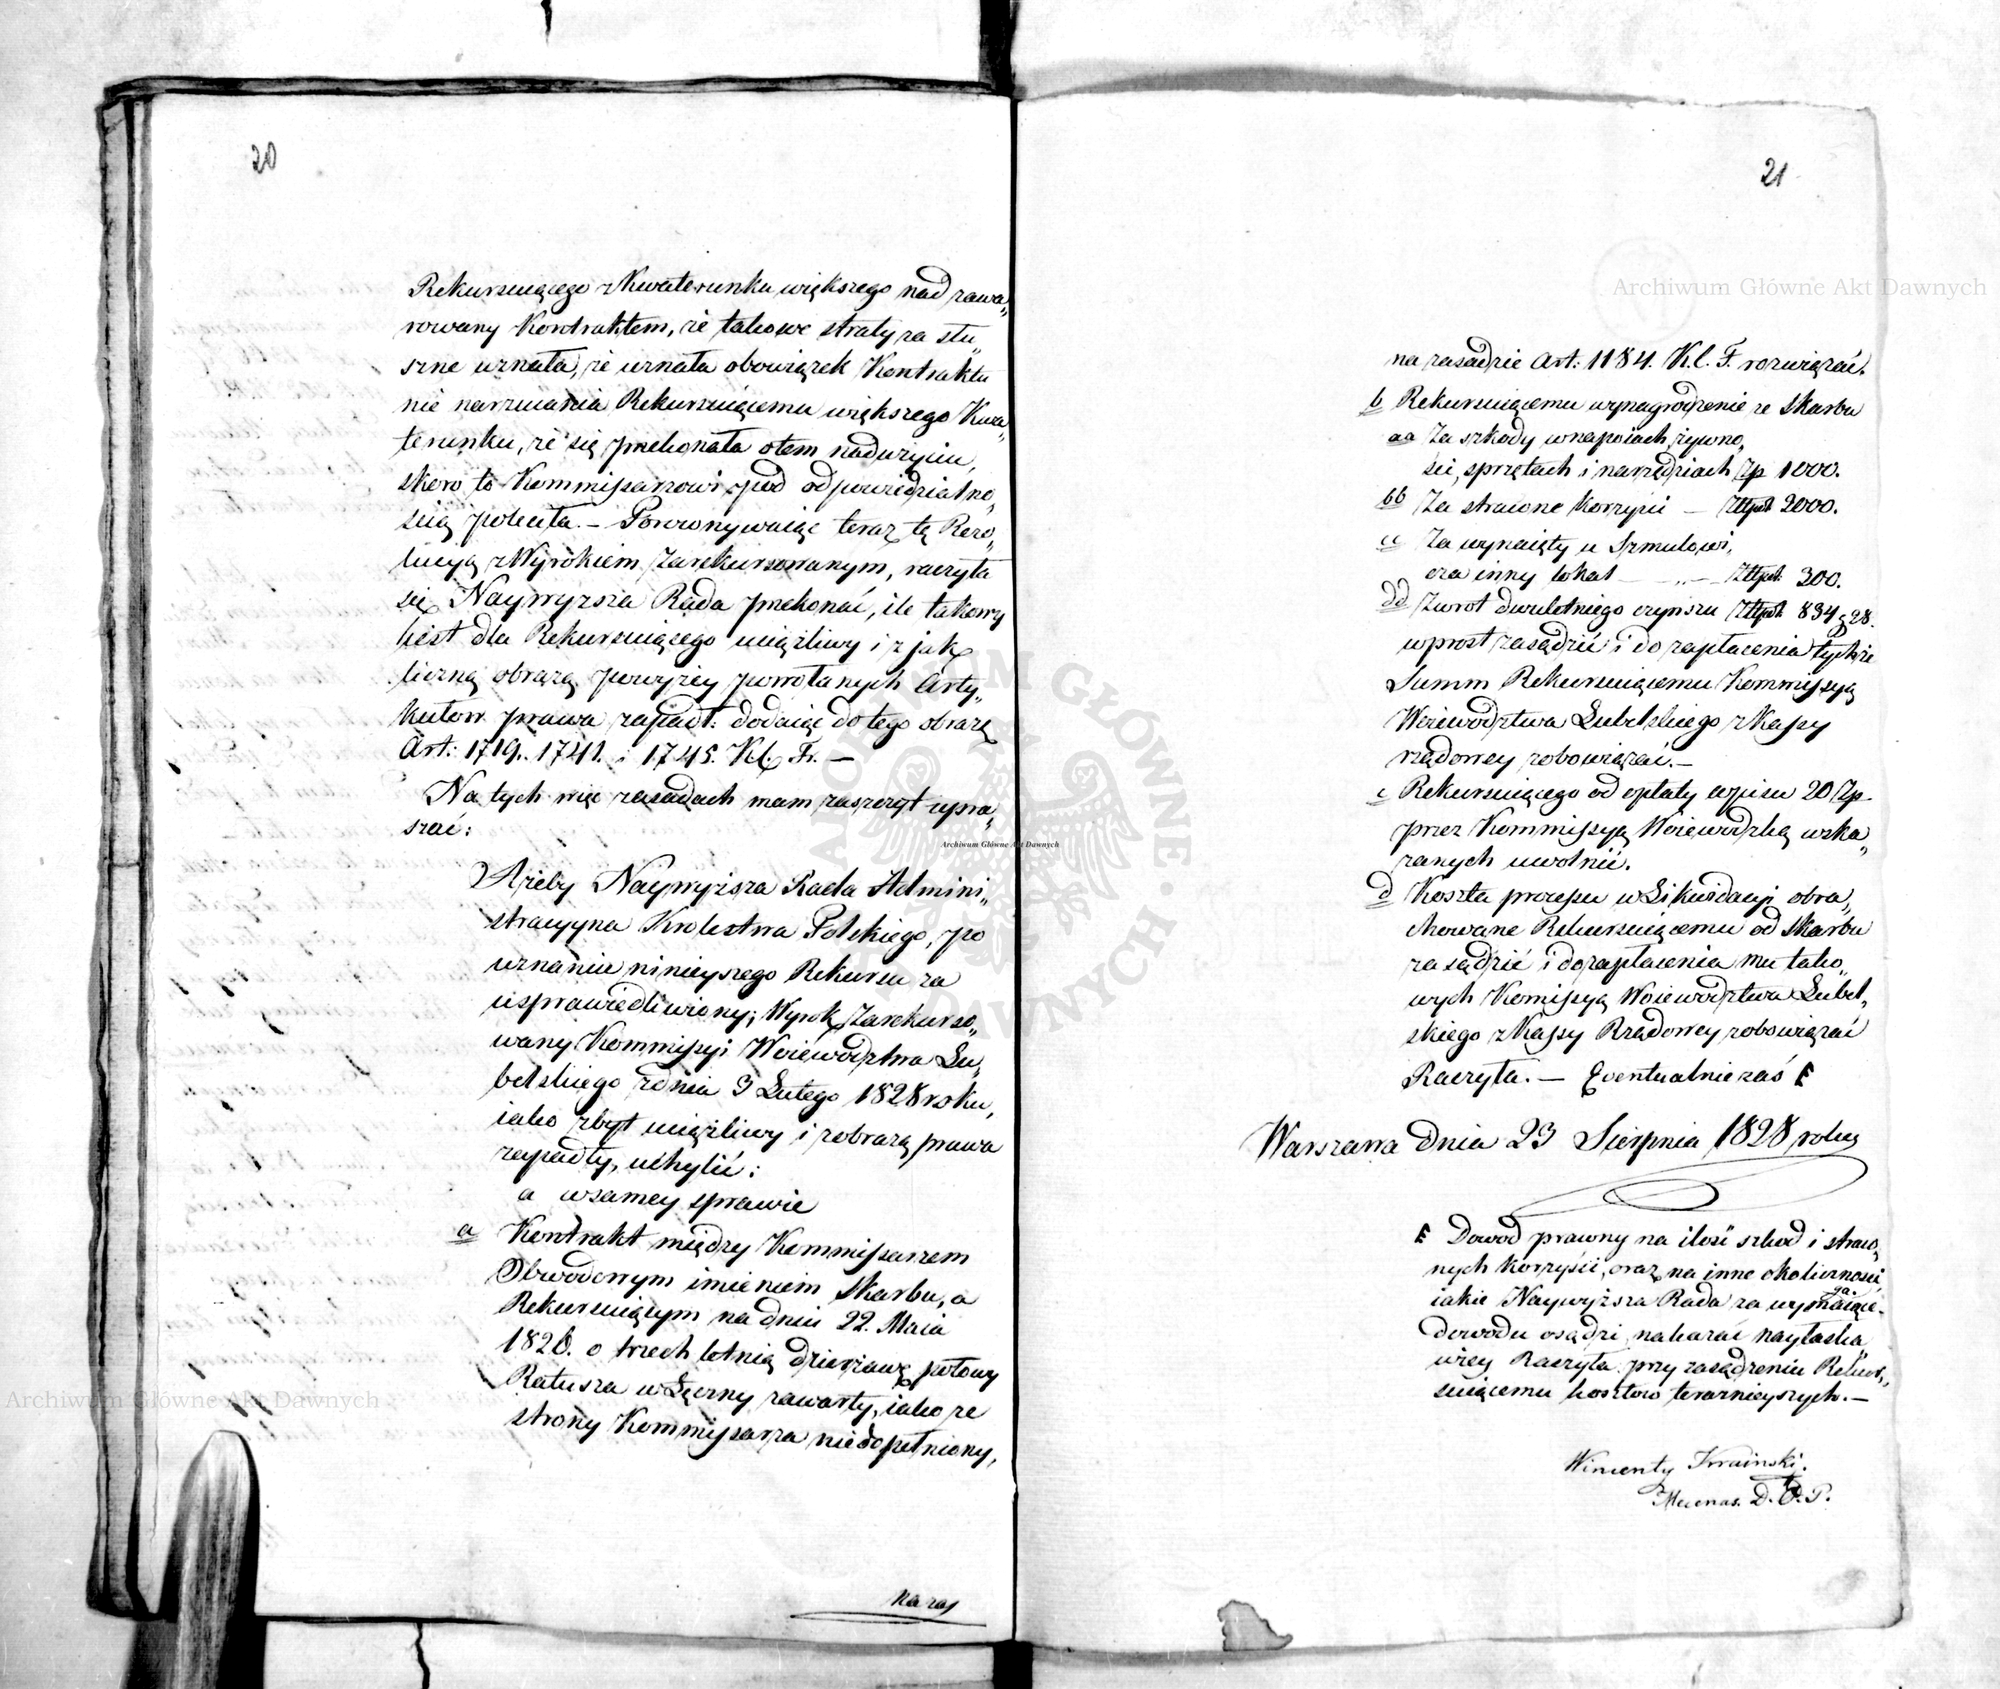 20
Rekursuiącego z Kwaterunku większego nad zawa„
rowany Kontraktem, że takowe straty za słu„
szne uznała, że uznała obowiązek Kontraktu
nie narzucania Rekursuiącemu większego Kwa„
terunku, że się przekonała o tem nadużyciu,
skoro to Kommissarzowi pod odpowiedzialno„
ścią poleciła. – Porownywaiąc teraz tę Rezo„
lucyą z Wyrokiem zarekursowanym, raczyła
się Naywyzsza Rada przekonać, ile takowy
iest dla Rekursuiącego uciążliwy i z jak
liczną obrazą powyżey powołanych Arty„
kułow prawa zapadł: dodaiąc do tego obrazę
Art: 1719. 1741. i 1745. K. C. Fr. –
Na tych więc zasadach mam zaszczyt upra„
szać:
Ażeby Naywyższa Rada Admini„
stracyyna Krolestwa Polskiego, po
uznaniu ninieyszego Rekursu za
usprawiedliwiony; Wyrok zarekurso„
wany Kommissyi Woiewodztwa Lu„
belskiego z dnia 3 Lutego 1828 roku,
iako zbyt uciążliwy i z obrazą prawa
zapadły, uchylić:
a w samey sprawie
a Kontrakt między Kommissarzem
Obwodowym imieniem Skarbu, a
Rekursuiącym na dniu 22. Maia
1826. o trzech letnią dzierzawę połowy
Ratusza w Łęczny zawarty, iako ze
strony Kommissarza niedopełniony,
na zas
21
na zasadzie Art: 1184. K. C. F. rozwiązać.
b Rekursuiącemu wynagrodzenie ze Skarbu
aa Za szkody w napoiach, żywno„
ści, sprzętach i narzędziach Zp 1000.
bb Za stracone Korzyści – Złtpol: 2000.
cc Za wynaięty u Szmulowi„
cza inny lokal – „ – Złtpol: 300.
dd Zwrot dwuletniego czynszu Złtpol: 834 g 28.
wprost zasądzić i do zapłacenia tychże
Summ Rekursuiącemu Kommissyą
Woiewodztwa Lubelskiego z Kassy
rządowey zobowiązać. –
c Rekursuiącego od opłaty wpisu 20 Zp
przez Kommissyą Woiewodzką wska„
zanych uwolnić.
d Koszta processu w Likwidacyi obra„
chowane Rekursuiącemu od Skarbu
zasądzić i do zapłacenia mu tako„
wych Komissyą Woiewodztwa Lubel„
skiego z Kassy Rządowey zobowiązać
Raczyła. – Eventualnie zaś F
Warszawa dnia 23 Sierpnia 1828 roku
F Dowod prawny na ilość szkod i straco„
nych korzyści, oraz na inne okoliczności
iakie Naywyższa Rada za wymagaiące
dowodu osądzi, nakazać nayłaska„
wiey Raczyła przy zasądzeniu Rekur„
suiącemu kosztow teraznieyszych. –
Wincenty
Mecenas.
Archiwum Główne Akt Dawnych
Archiwum Główne Akt Dawnych
Archiwum Główne Akt Dawnych
ARCHIWUM GŁÓWNE AKT DAWNYCH